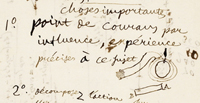 choses importantes
1° point de courans par
influence, expérience
précises à ce sujet
2° décomposez l'action